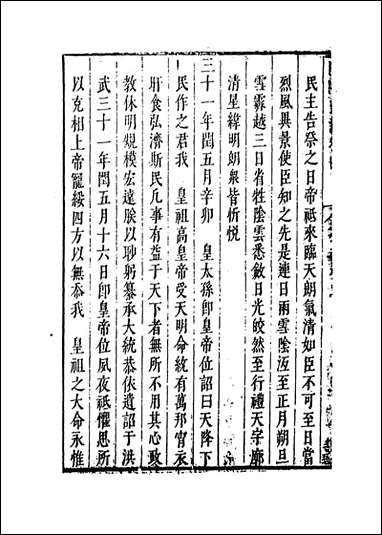 民主告祭之日帝祗來臨天朗氣清如臣不可至日當
烈風異景使臣知之先是連日雨雪陰沍至正月朔旦
雪霽越三日省牲陰雲悉斂日光皎然至行禮天宇廓
清星緯明朗衆皆忻悦
三十一年閏五月辛卯　皇太孫即皇帝位詔曰天降下
民作之君我　皇祖高皇帝受天明命統有萬邦宵衣
旰食弘濟斯民凡事有益于天下者無所不用其心政
教休明規模宏遠朕以眇躬纂承大統恭依遺詔于洪
武三十一年閏五月十六日即皇帝位夙夜祗懼思所
以克相上帝寵綏四方以無忝我　皇祖之大命永惟